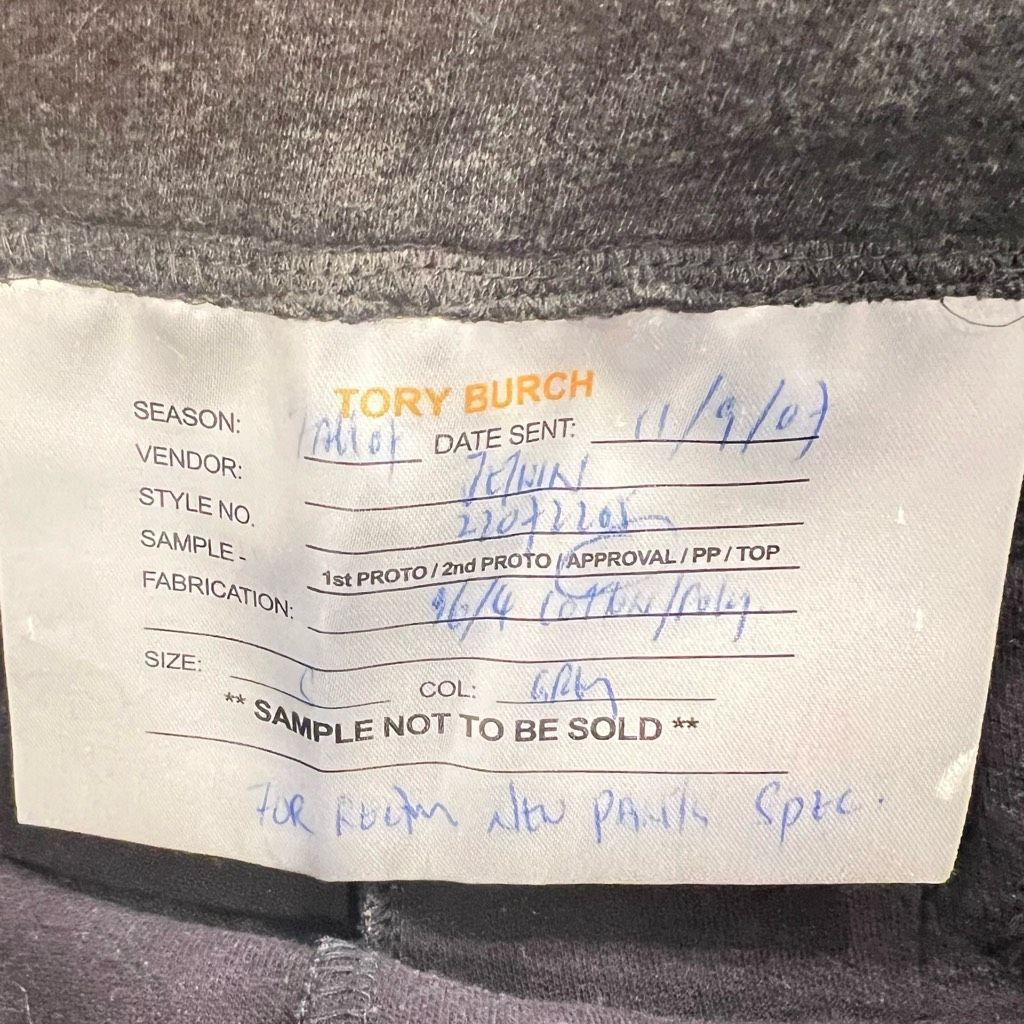 TORY BURCH
SEASON: DATE SENT: 11/9/07
VENDOR:
STYLE NO.
SAMPLE - 1st PROTO / 2nd PROTO / APPROVAL / PP / TOP
FABRICATION: 96/4 Cotton/Poly.
SIZE: COL: GRey
** SAMPLE NOT TO BE SOLD **
FOR NEW PANTS SPEC.